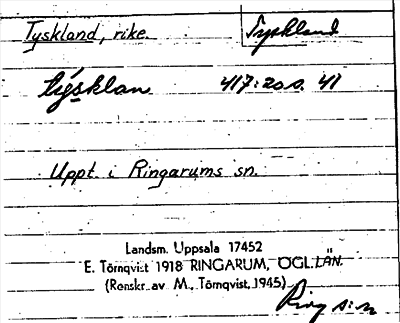 Tyskland, rike
Tyskland
týsklan 417:20 s. 41
Uppt. i Ringarums sn.
Landsm. Uppsala 17452
E. Törnqvist 1918 RINGARUM, ÖGL.LÄN.
(Renskr. av M. Törnqvist, 1945)
Ring s:n